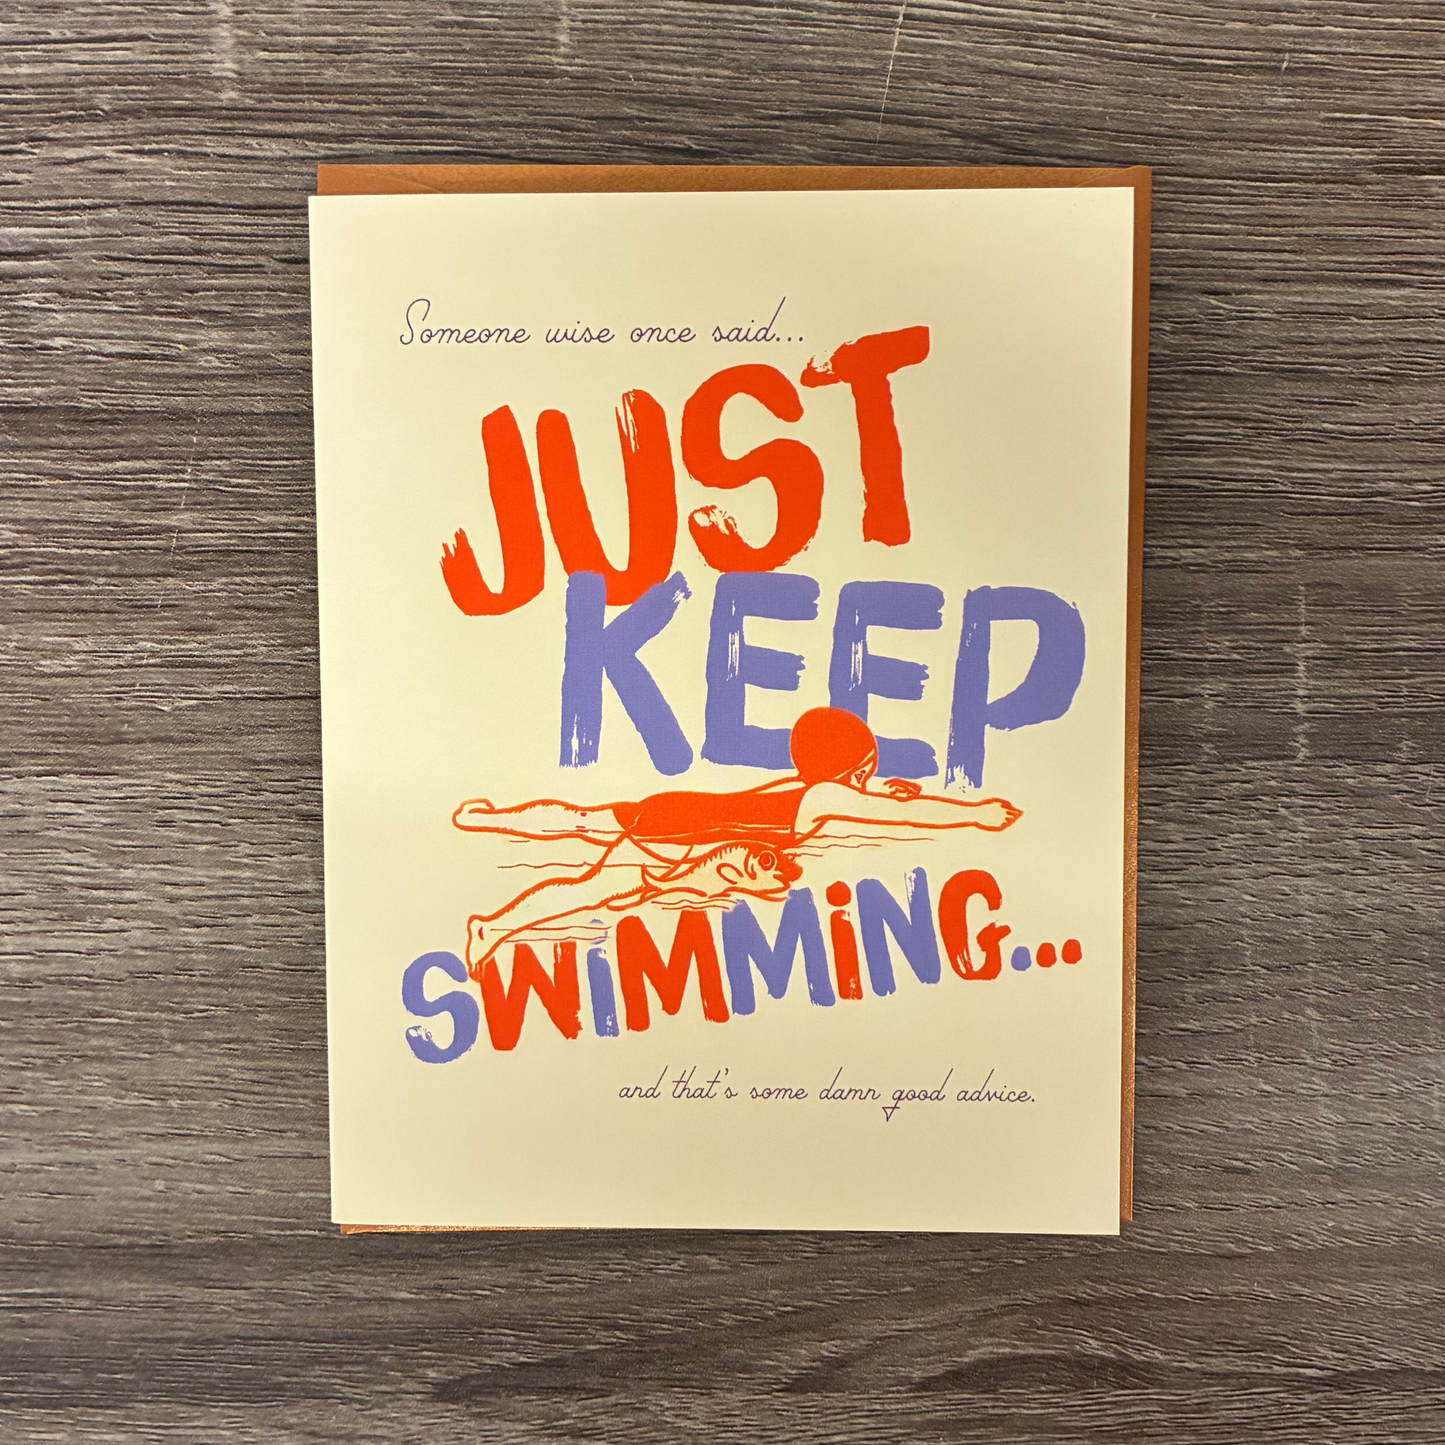 Someone wise once said...
JUST
KEEP
SWiMMiNG...
and that's some damn good advice.